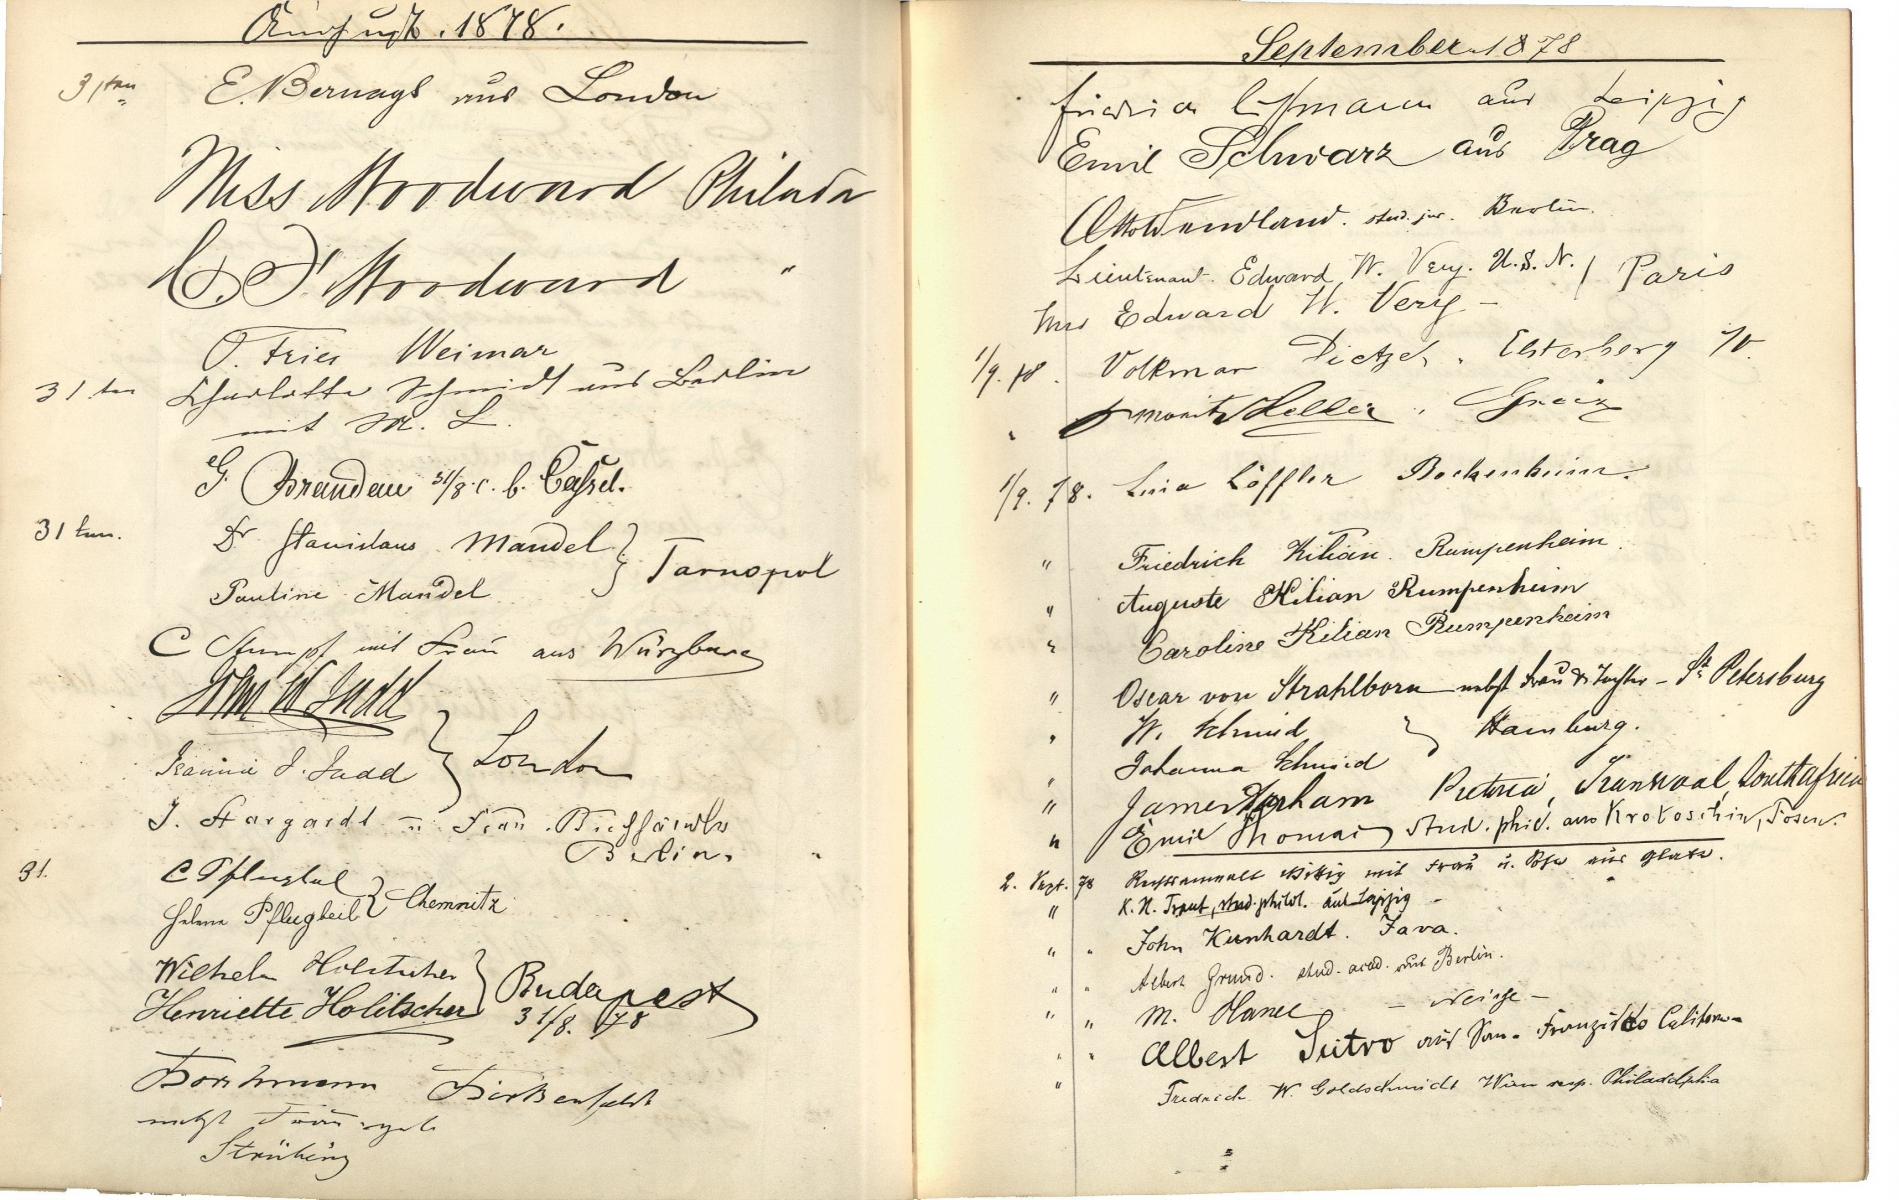 August. 1878.
31ten E. Bernays aus London
Miss Woodward Philada
Woodward "
O. Fries Weimar
31 ten Charlotte Schmidt aus Berlin
mit M. L.
G. Brandau 31/8. c. b. Cassel.
31 ten. Dr Stanislaus Mandel
Tarnopol
Pauline Mandel
C Stumpf mit Frau aus Würzburg
John W Judd
London
Jeannie J. Judd
J. Stargardt u Frau. Buchhändler
Berlin.
31. C Pflugbeil
Chemnitz
Helene Pflugbeil
Wilhelm Holitscher
Budapest
Henriette Holitscher
31/8. 78
nebst Frau
September 1878
Friedrich aus Leipzig
Emil Schwarz aus Prag
Otto Wendland. stud. jur. Berlin.
Lieutenant Edward W. Very. U.S.N. Paris
Mrs Edward W. Very –
1/9. 78. Volkmar Dietzsch, Elsterberg i/V.
" Moritz Heller, Greiz
1/9. 78. Lina Löffler Bockenheim.
" Friedrich Kilian. Rumpenheim.
" Auguste Kilian Rumpenheim
" Caroline Kilian Rumpenheim
" Oscar von Strahlborn nebst Frau & Tochter – St Petersburg
" W. Schmid
Hamburg.
" Johanna Schmid
" James Pretoria, Transvaal, Southafrica
" Emil Thomas, stud. phil. aus Krotoschin, Posen.
2. Sept. 78 Rechtsanwalt mit Frau u. aus Glatz.
" K. N. stud. philol. aus Leipzig –
" " John Kunhardt. Java.
" " Albert Grund. stud. acad. aus Berlin.
" " M. Hanel – Neisse –
" " Albert Sutro aus San. Franzisco Californ–
" Friedrich W. Goldschmidt Wien resp. Philadelphia